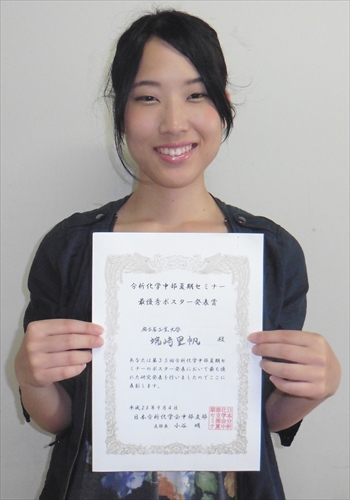 分析化学中部夏期セミナー
最優秀ポスター発表賞
名古屋工業大学
堀崎里帆 殿
あなたは第23回分析化学中部夏期セ
ミナーのポスター発表において最も優
れた研究発表を行いましたのでここに
表彰します。
平成28年9月6日
日本分析化学会中部支部
支部長 小谷 明